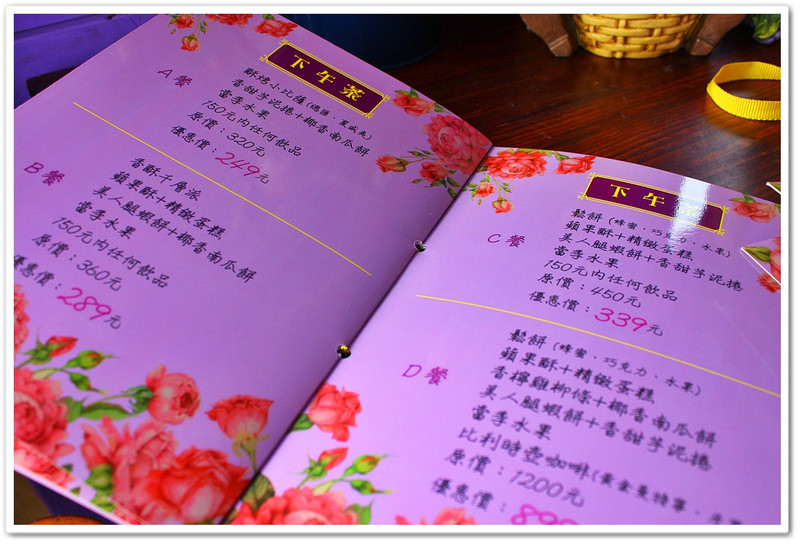 下午茶
A餐
酥烤小比薩(瑪莉、夏威夷)
香甜芋泥捲+椰香南瓜餅
當季水果
150元內任何飲品
原價：320元
優惠價：249元
B餐
香酥千層派
蘋果酥+精緻蛋糕
美人腿蝦餅+椰香南瓜餅
當季水果
150元內任何飲品
原價：360元
優惠價：289元
下午
C餐
鬆餅(蜂蜜、巧克力、水果)
蘋果酥+精緻蛋糕
美人腿蝦餅+香甜芋泥捲
當季水果
150元內任何飲品
原價：450元
優惠價：339元
D餐
鬆餅(蜂蜜、巧克力、水果)
蘋果酥+精緻蛋糕
香檸雞柳條+椰香南瓜餅
美人腿蝦餅+香甜芋泥捲
當季水果
比利時壺咖啡(黃金曼特寧、
原價：1200元
優惠價：